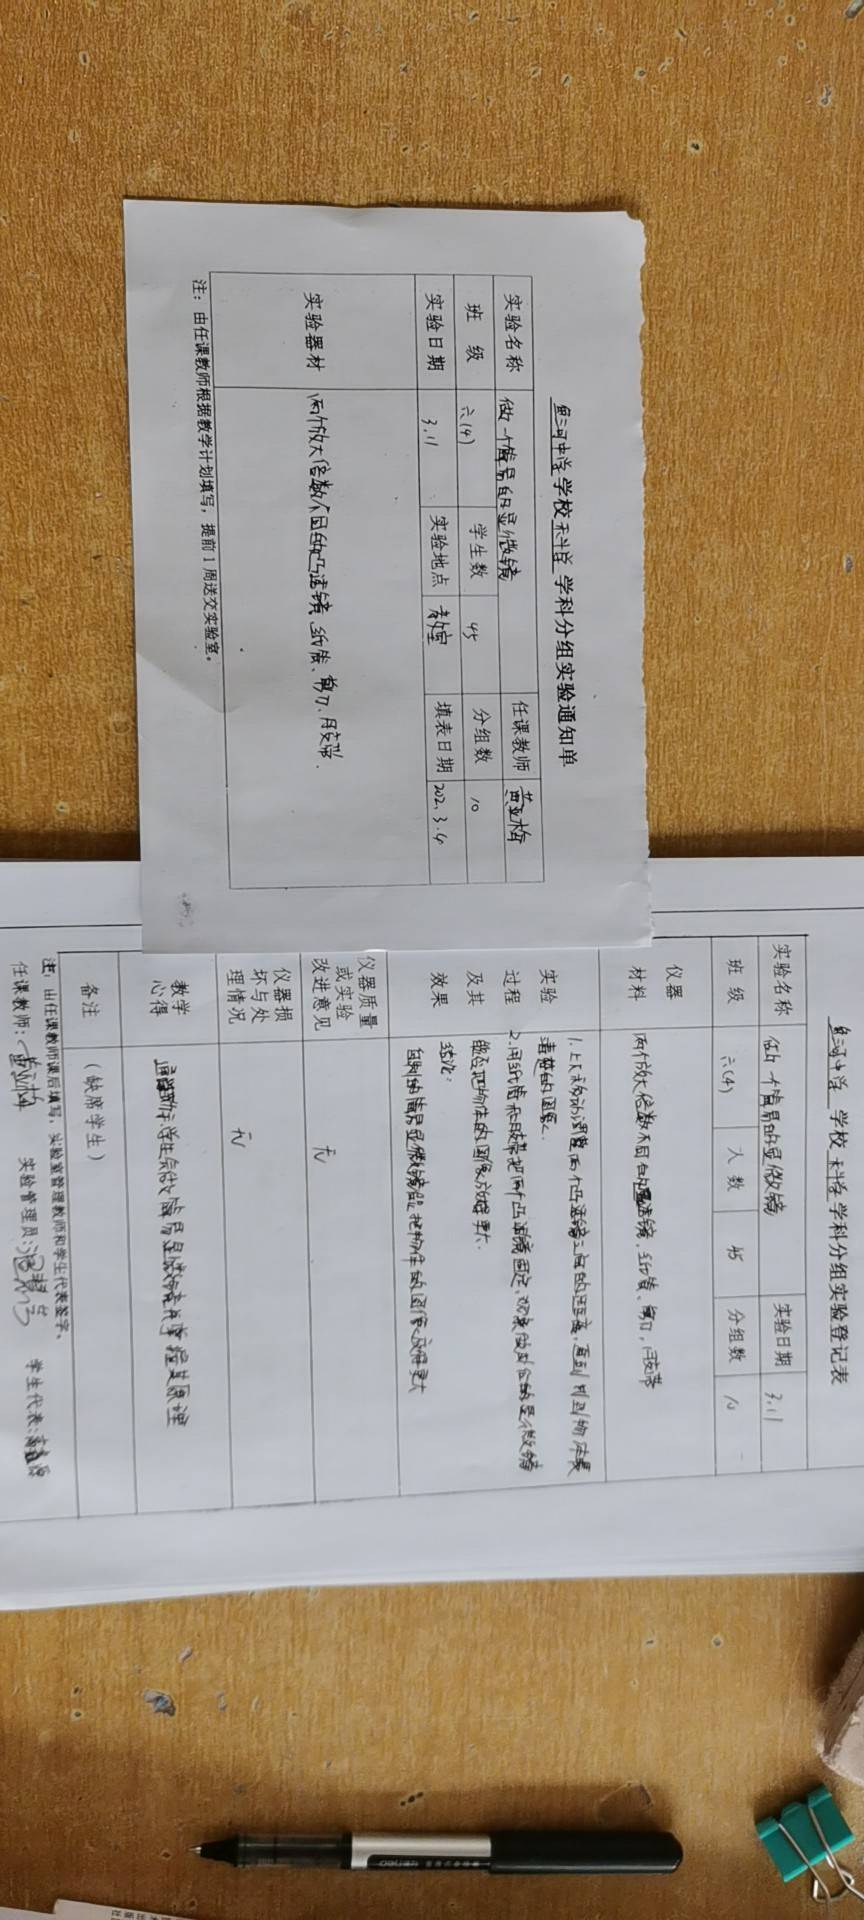 中学学校科学学科分组实验通知单
实验名称 做一个简易的显微镜 任课教师 黄亚梅
班 级 六(4) 学生数 45 分组数 10
实验日期 3.11 实验地点 教室 填表日期 202.3.4
实验器材 两个放大倍数不同的凸透镜、纸筒、剪刀、胶带.
注：由任课教师根据教学计划填写，提前1周送交实验室。
中学 学校 科学 学科分组实验登记表
实验名称 做一个简易的显微镜 实验日期 3.11
班 级 六(4) 人 数 45 分组数 10
仪器
材料
两个放大倍数不同的凸透镜、纸筒、剪刀、胶带
实验
过程
及其
效果
1.上下移动调整两个凸透镜之间的距离，直到 到物体最
清楚的图象.
2.用纸筒和胶带把两个凸透镜固定，观察 的显微镜
能否把物体的图像放得更大.
结论:
自制的简易显微镜能把物体的图像放得更大
仪器质量
或实验
改进意见
无
仪器损
坏与处
理情况
无
教学
心得
学生 简易显微镜 原理
备注 (缺席学生)
注：由任课教师课后填写，实验室管理教师和学生代表签字。
任课教师：黄亚梅 实验管理员: 学生代表: